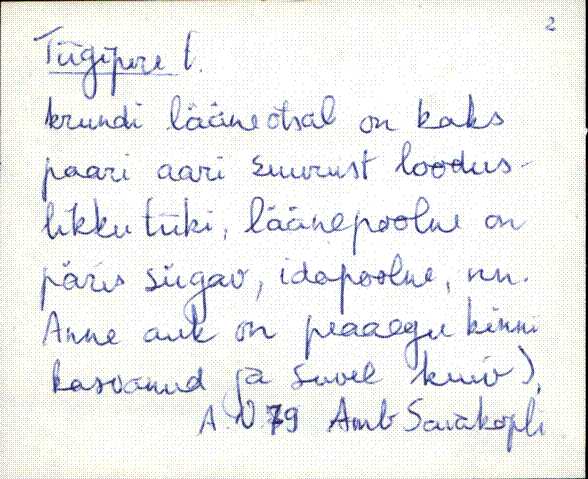 2
Tiigipere t.
krundi lääneotsal on kaks
paari aari suurust loodus-
likku tiiki, läänepoolne on
päris sügav, idapoolne, nn.
Anne auk on peaaegu kinni
kasvanud ja suvel kuiv).
A.V.79 Amb Savakopli